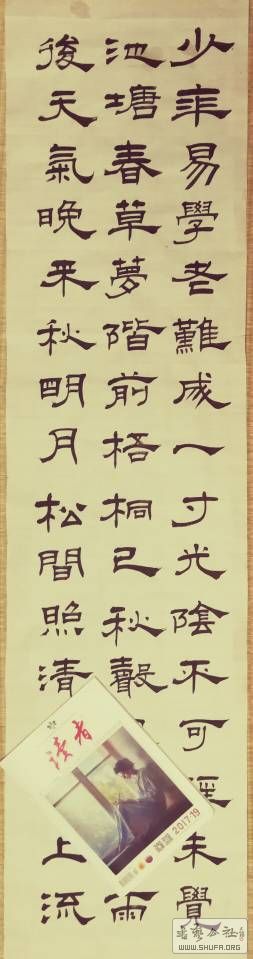 少年易學老難成一寸光陰不可輕未覺
池塘春草夢階前梧桐已秋聲雨
後天氣晚来秋明月松間照清上流
读者
2017·19
書藝公社
WWW.SHUFA.ORG